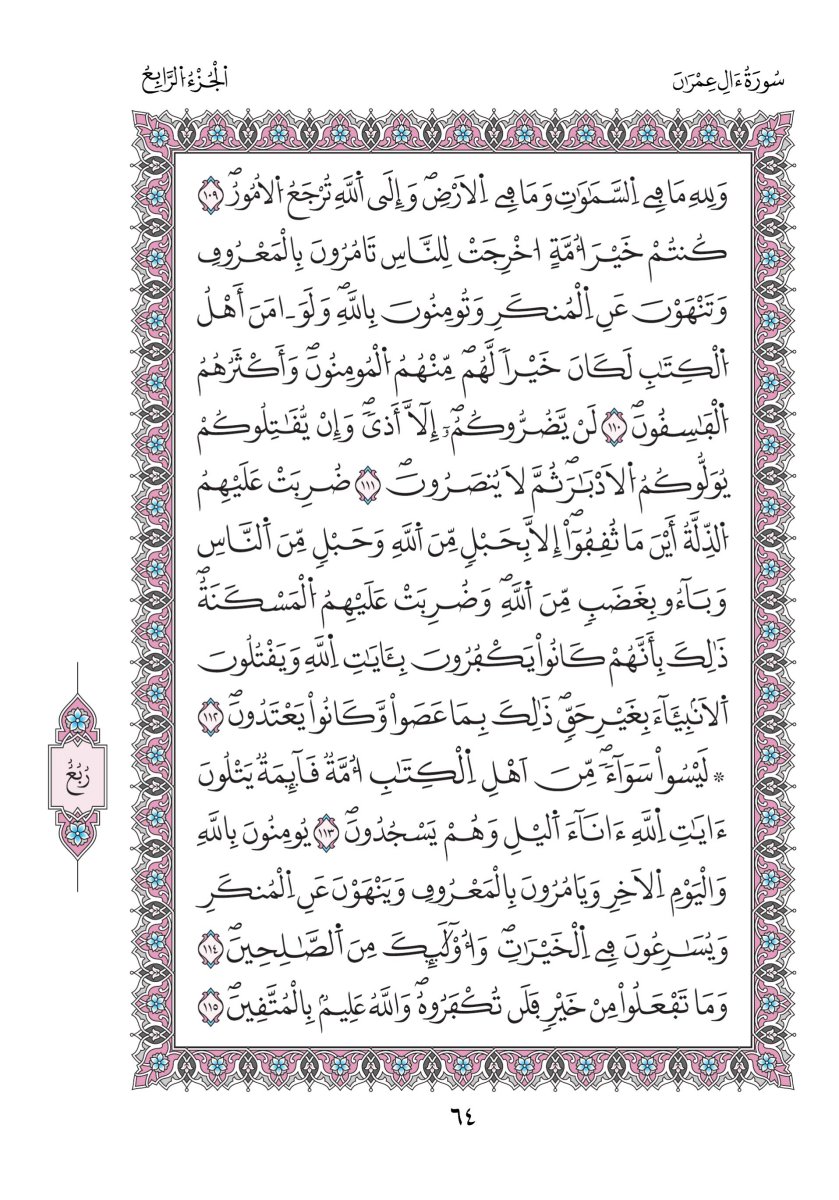 سُورَةُ ءَالِ عِمْرَٰنَ
اَ۬لْجُزْءُ اُ۬لرَّابِعُ
وَلِلهِ مَا فِے اِ۬لسَّمَٰوَٰتِ وَمَا فِے اِ۬لَارْضِۖ وَإِلَى اَ۬للَّهِ تُرْجَعُ اُ۬لُامُورُۖ ١٠٩
كُنتُمْ خَيْرَ أُمَّةٍ ا۟خْرِجَتْ لِلنَّاسِ تَامُرُونَ بِالْمَعْرُوفِ
وَتَنْهَوْنَ عَنِ اِ۬لْمُنكَرِ وَتُومِنُونَ بِاللَّهِۖ وَلَوَ ـ امَنَ أَهْلُ
اُ۬لْكِتَٰبِ لَكَانَ خَيْراٗ لَّهُمۖ مِّنْهُمُ اُ۬لْمُومِنُونَۖ وَأَكْثَرُهُمُ
اُ۬لْفَٰسِقُونَۖ ١١٠ لَنْ يَّضُرُّوكُمُۥٓ إِلَّآ أَذىٗۖ وَإِنْ يُّقَٰتِلُوكُمْ
يُوَلُّوكُمُ اُ۬لَادْبَٰرَۖ ثُمَّ لَا يُنصَرُونَۖ ١١١ ضُرِبَتْ عَلَيْهِمُ
اُ۬لذِّلَّةُ أَيْنَ مَا ثُقِفُوٓاْۖ إِلَّا بِحَبْلٖ مِّنَ اَ۬للَّهِ وَحَبْلٖ مِّنَ اَ۬لنَّاسِ
وَبَآءُو بِغَضَبٖ مِّنَ اَ۬للَّهِۖ وَضُرِبَتْ عَلَيْهِمُ اُ۬لْمَسْكَنَةُۖ
ذَٰلِكَ بِأَنَّهُمْ كَانُواْ يَكْفُرُونَ بِـَٔايَٰتِ اِ۬للَّهِ وَيَقْتُلُونَ
اَ۬لَانۢبِيَٓاءَ بِغَيْرِ حَقّٖۖ ذَٰلِكَ بِمَا عَصَواْ وَّكَانُواْ يَعْتَدُونَۖ ١١٢
۞ لَيْسُواْ سَوَآءٗۖ مِّنَ اَهْلِ اِ۬لْكِتَٰبِ أُمَّةٞ قَآئِمَةٞ يَتْلُونَ
ءَايَٰتِ اِ۬للَّهِ ءَانَآءَ اَ۬ليْلِ وَهُمْ يَسْجُدُونَۖ ١١٣ يُومِنُونَ بِاللَّهِ
وَالْيَوْمِ اِ۬لَاخِرِ وَيَامُرُونَ بِالْمَعْرُوفِ وَيَنْهَوْنَ عَنِ اِ۬لْمُنكَرِ
وَيُسَٰرِعُونَ فِے اِ۬لْخَيْرَٰتِۖ وَأُوْلَٰٓئِكَ مِنَ اَ۬لصَّٰلِحِينَۖ ١١٤
وَمَا تَفْعَلُواْ مِنْ خَيْرٖ فَلَن تُكْفَرُوهُۖ وَاللَّهُ عَلِيمُۢ بِالْمُتَّقِينَۖ ١١٥
رُبُعُ
٦٤